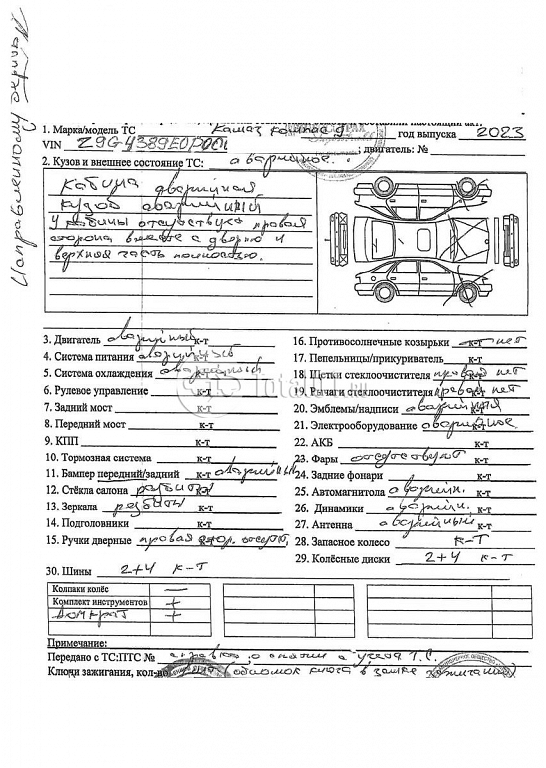 Направленному
1. Марка/модель ТС Камаз компас 9 год выпуска 2023
VIN ; двигатель: №
2. Кузов и внешнее состояние ТС: аварийное.
Кабина аварийная
кузов аварийный
У кабины отсутствует правая
сторона вместе с дверью и
верхняя часть полностью.
3. Двигатель аварийный к-т
4. Система питания аварийный к-т
5. Система охлаждения аварийный к-т
6. Рулевое управление к-т
7. Задний мост к-т
8. Передний мост к-т
9. КПП к-т
10. Тормозная система к-т
11. Бампер передний/задний к-т аварийный
12. Стёкла салона разбиты к-т
13. Зеркала разбиты к-т
14. Подголовники к-т
15. Ручки дверные правая отсут. к-т
16. Противосолнечные козырьки к-т нет
17. Пепельницы/прикуриватель к-т
18. Щетки стеклоочистителя правой нет к-т
19. Рычаги стеклоочистителя правой нет к-т
20. Эмблемы/надписи аварийный к-т
21. Электрооборудование аварийное к-т
22. АКБ к-т
23. Фары отсутствуют к-т
24. Задние фонари к-т
25. Автомагнитола аварийн. к-т
26. Динамики аварийн. к-т
27. Антенна аварийный к-т
28. Запасное колесо к-т
29. Колёсные диски 2+4 к-т
30. Шины 2+4 к-т
Колпаки колёс —
Комплект инструментов +
Домкрат +
Примечание:
Передано с ТС:ПТС № справка о снятии с учета Т.С.
Ключи зажигания, кол-во (обломок ключа в замке зажигания)
total01.ru